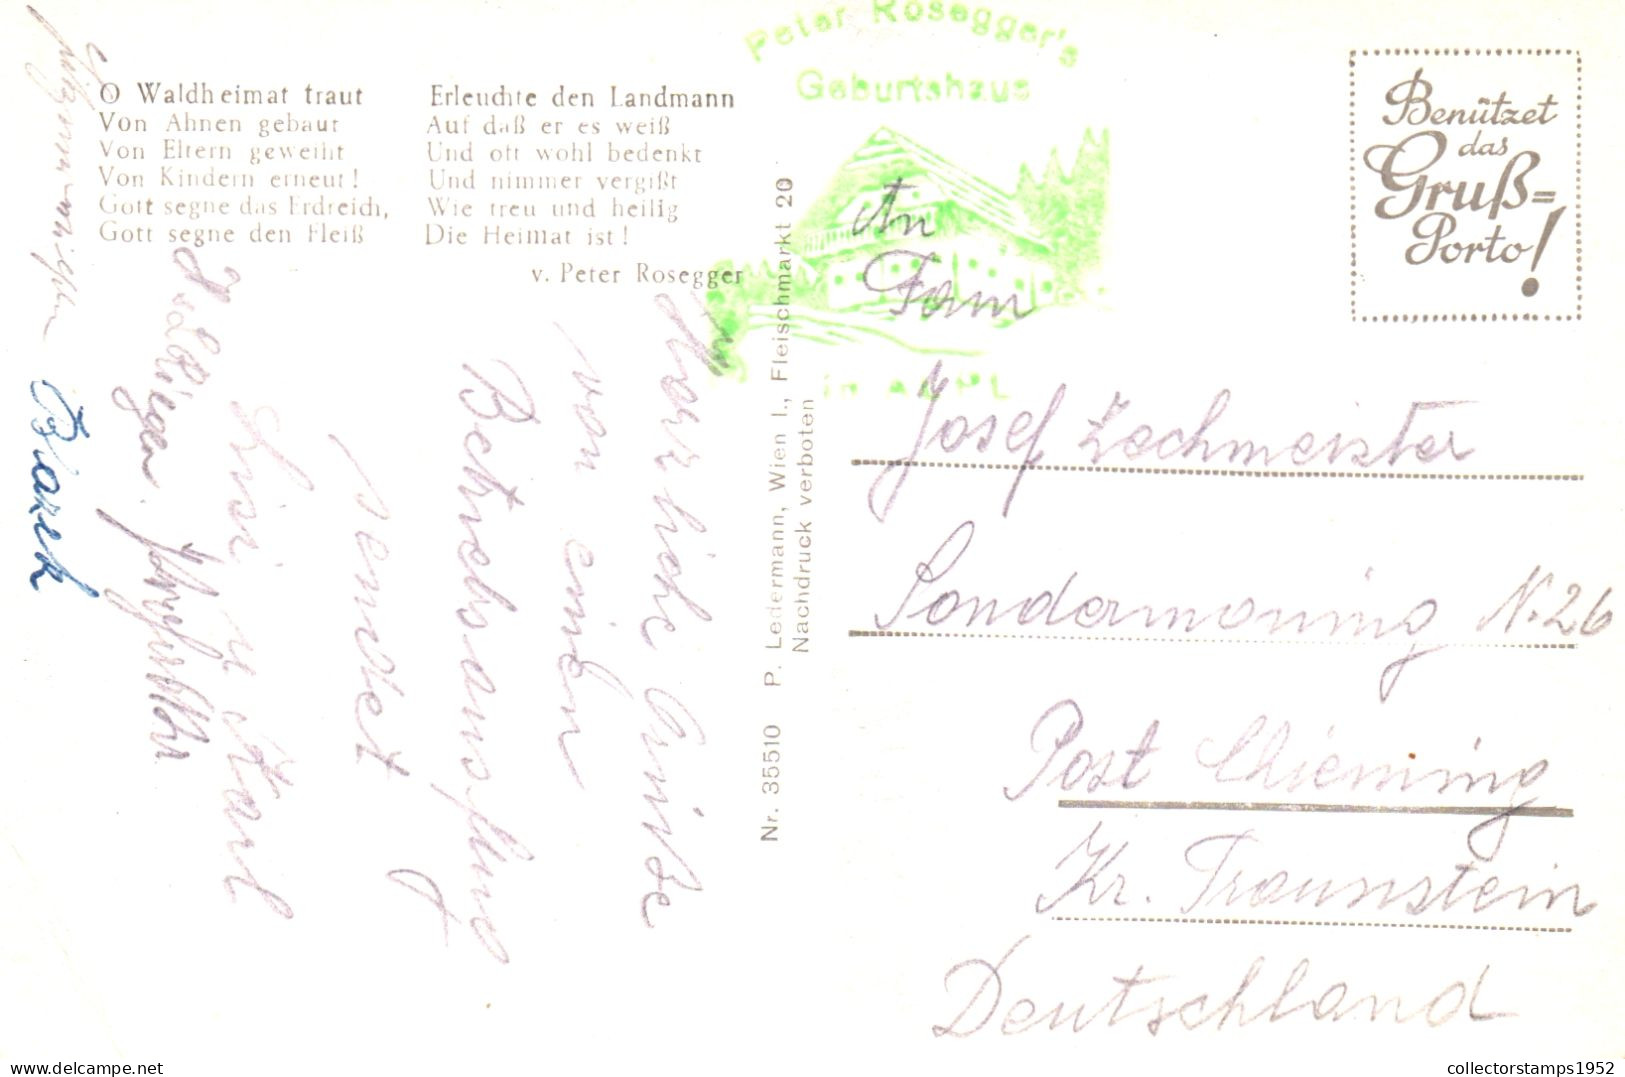 O Waldheimat traut
Von Ahnen gebaut
Von Eltern geweiht
Von Kindern erneut!
Gott segne das Erdreich,
Gott segne den Fleiß
Erleuchte den Landmann
Auf daß er es weiß
Und oft wohl bedenkt
Und nimmer vergißt
Wie treu und heilig
Die Heimat ist!
v. Peter Rosegger
Peter Rosegger's
Geburtshaus
in ALPL
Benützet
das
Gruß=
Porto!
Nr. 35510 P. Ledermann, Wien I., Fleischmarkt 20
Nachdruck verboten
An
Fam
Josef Zechmeister
Sondermoning N. 26
Post Chieming
Kr. Traunstein
Deutschland
Herzliche Grüße
von einem
Betriebsausflug
sendet
Blazek
delcampe.net
collectorstamps1952